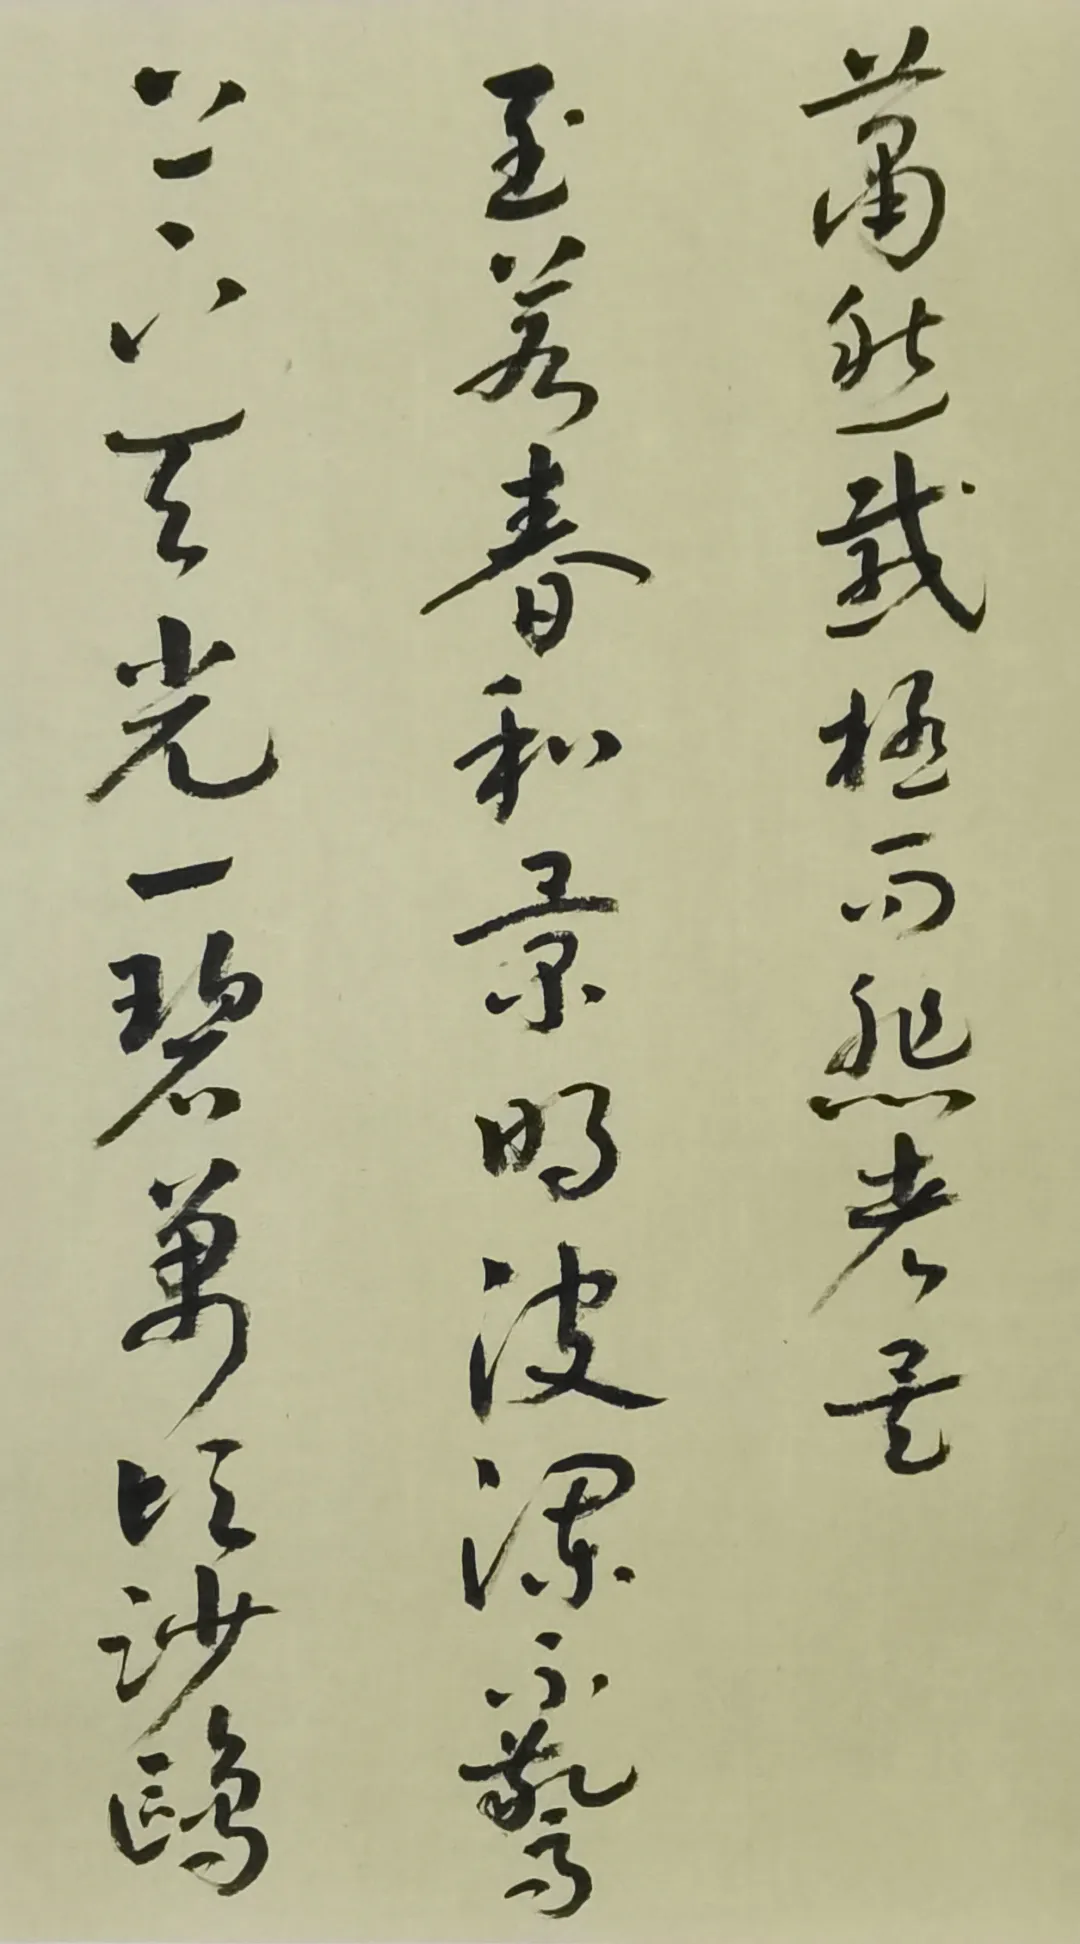 蕭然感極而悲者矣
至若春和景明波瀾不驚
上下天光一碧萬頃沙鷗